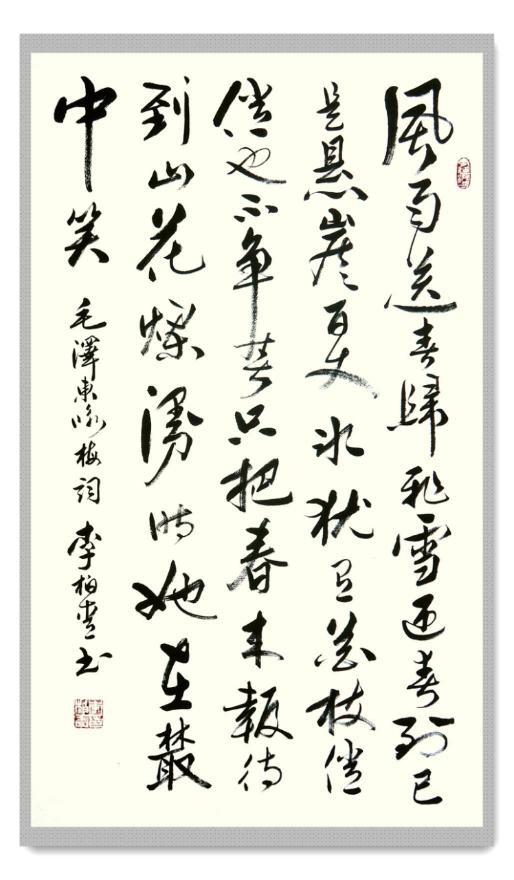 風雨送春歸飛雪迎春到已
是悬崖百丈冰犹有花枝俏
俏也不争春只把春来報待
到山花燦漫时她在叢
中笑
毛澤東咏梅詞 李柏堂书